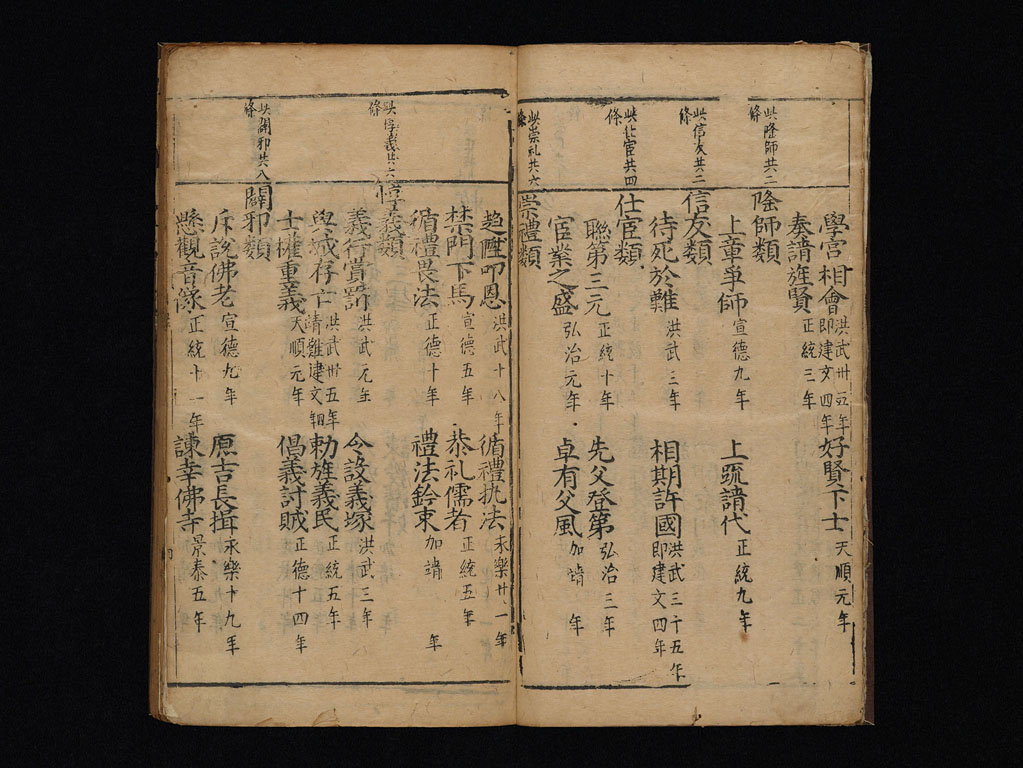 學宮相會 洪武卅五年即建文四年 好賢下士 天順元年
奏請旌賢 正統三年
此隆師共二條
隆師類
上章爭師 宣德九年 上疏請代 正統九年
此信友共二條
信友類
待死於難 洪武三年 相期許國 洪武三十五年即建文四年
此仕宦共四條
仕宦類
聯第三元 正統十年 先父登第 弘治三年
宦業之盛 弘治元年 卓有父風 加靖 年
此崇礼共六條
崇禮類
趋陞叩恩 洪武十八年 循禮执法 永樂廿一年
禁門下馬 宣德五年 恭礼儒者 正統五年
循禮畏法 正德十年 禮法鈐束 加靖 年
此惇義共六條
惇義類
義行賞罰 洪武元年 令設義塚 洪武三年
與城存亡 洪武卅五年靖難建文四年 勅旌義民 正統五年
士權重義 天順元年 倡義討賊 正德十四年
此闢邪共八條
闢邪類
斥說佛老 宣德九年 原吉長揖 永樂十九年
懸觀音像 正統十一年 諫幸佛寺 景泰五年